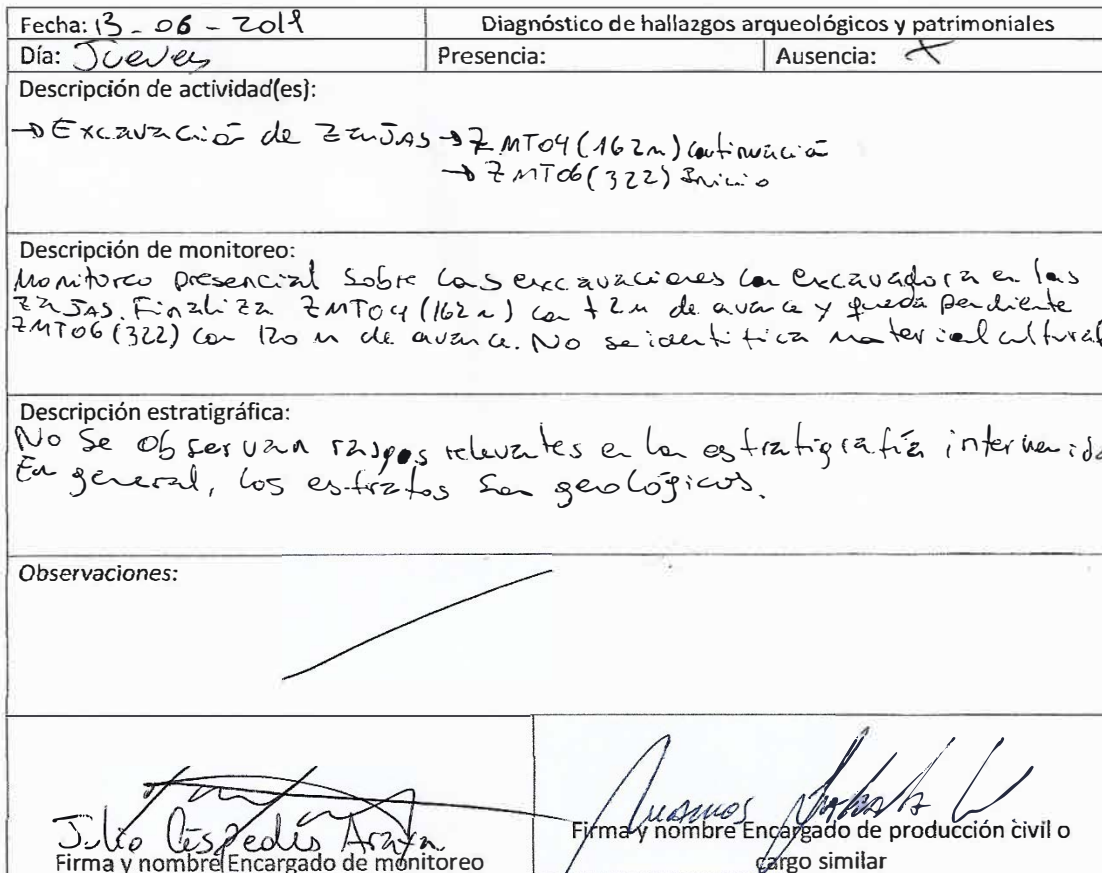 Fecha: 13-06-2019 Diagnóstico de hallazgos arqueológicos y patrimoniales
Día: Jueves Presencia: Ausencia: X
Descripción de actividad(es):
→ Excavación de zanjas → ZMT04 (162m) continuación
→ ZMT06 (322) Inicio
Descripción de monitoreo:
Monitoreo presencial sobre las excavaciones con excavadora en las
zanjas. Finaliza ZMT04 (162m) con +2m de avance y queda pendiente
ZMT06 (322) con 120 m de avance. No se identifica material cultural
Descripción estratigráfica:
No se observan rasgos relevantes en la estratigrafía intervenida
En general, los estratos son geológicos.
Observaciones:
Julio Céspedes Araya
Firma y nombre Encargado de monitoreo
Firma y nombre Encargado de producción civil o
cargo similar